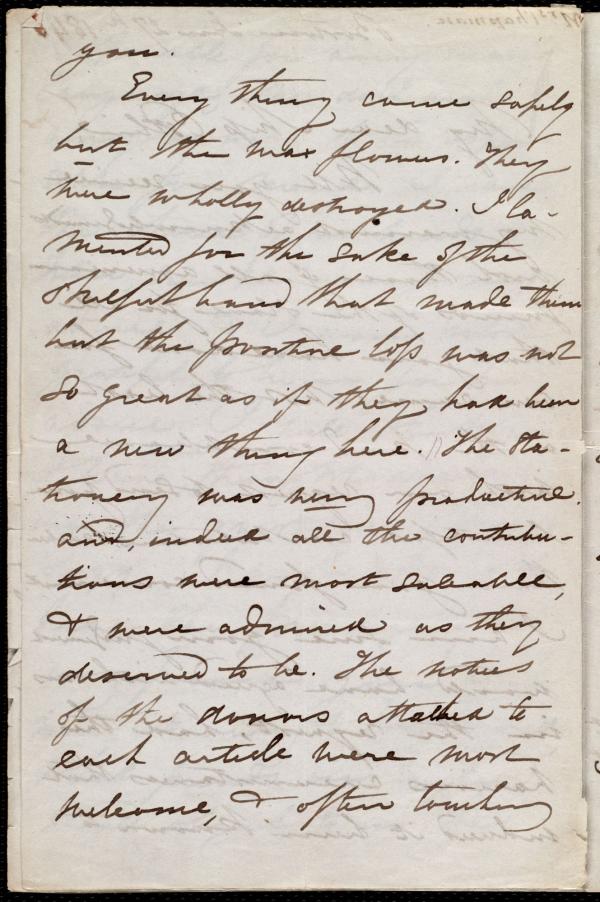 you.
Every thing came safely
but the wax flowers. They
were wholly destroyed. I la-
mented for the sake of the
skilful hand that made them
but the positive loss was not
so great as if they had been
a new thing here. The sta-
tionery was very productive.
and, indeed all the contribu-
tions were most saleable,
& were admired as they
deserved to be. The notices
of the donors attached to
each article were most
welcome, & often touching